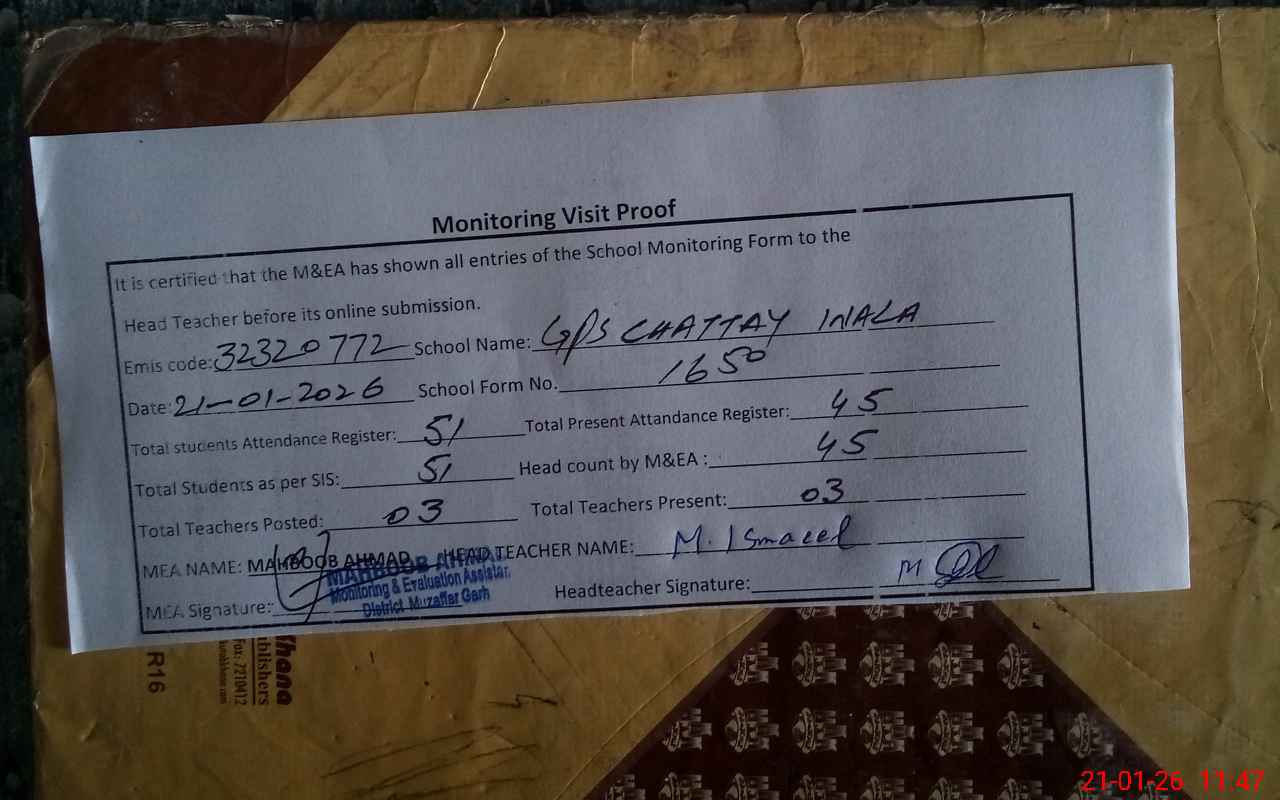 Monitoring Visit Proof
It is certified that the M&EA has shown all entries of the School Monitoring Form to the
Head Teacher before its online submission.
Emis code: 32320772 School Name: GPS CHATTAY WALA
Date: 21-01-2026 School Form No. 1650
Total students Attendance Register: 51 Total Present Attandance Register: 45
Total Students as per SIS: 51 Head count by M&EA : 45
Total Teachers Posted: 03 Total Teachers Present: 03
MEA NAME: MAHBOOB AHMAD HEAD TEACHER NAME: M. Ismaeel
MEA Signature: Headteacher Signature: M
MAHBOOB AHMAD
Monitoring & Evaluation Assistant
District Muzaffar Garh
R16
Fax: 7210412
21-01-26 11:47